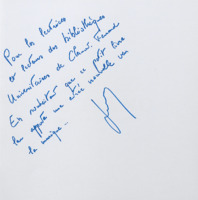 Pour les lectrices
et lecteurs des bibliothèques
Universitaires de Clermont-Ferrand
En souhaitant que ce petit livre
leur apporte une nouvelle
la musique...